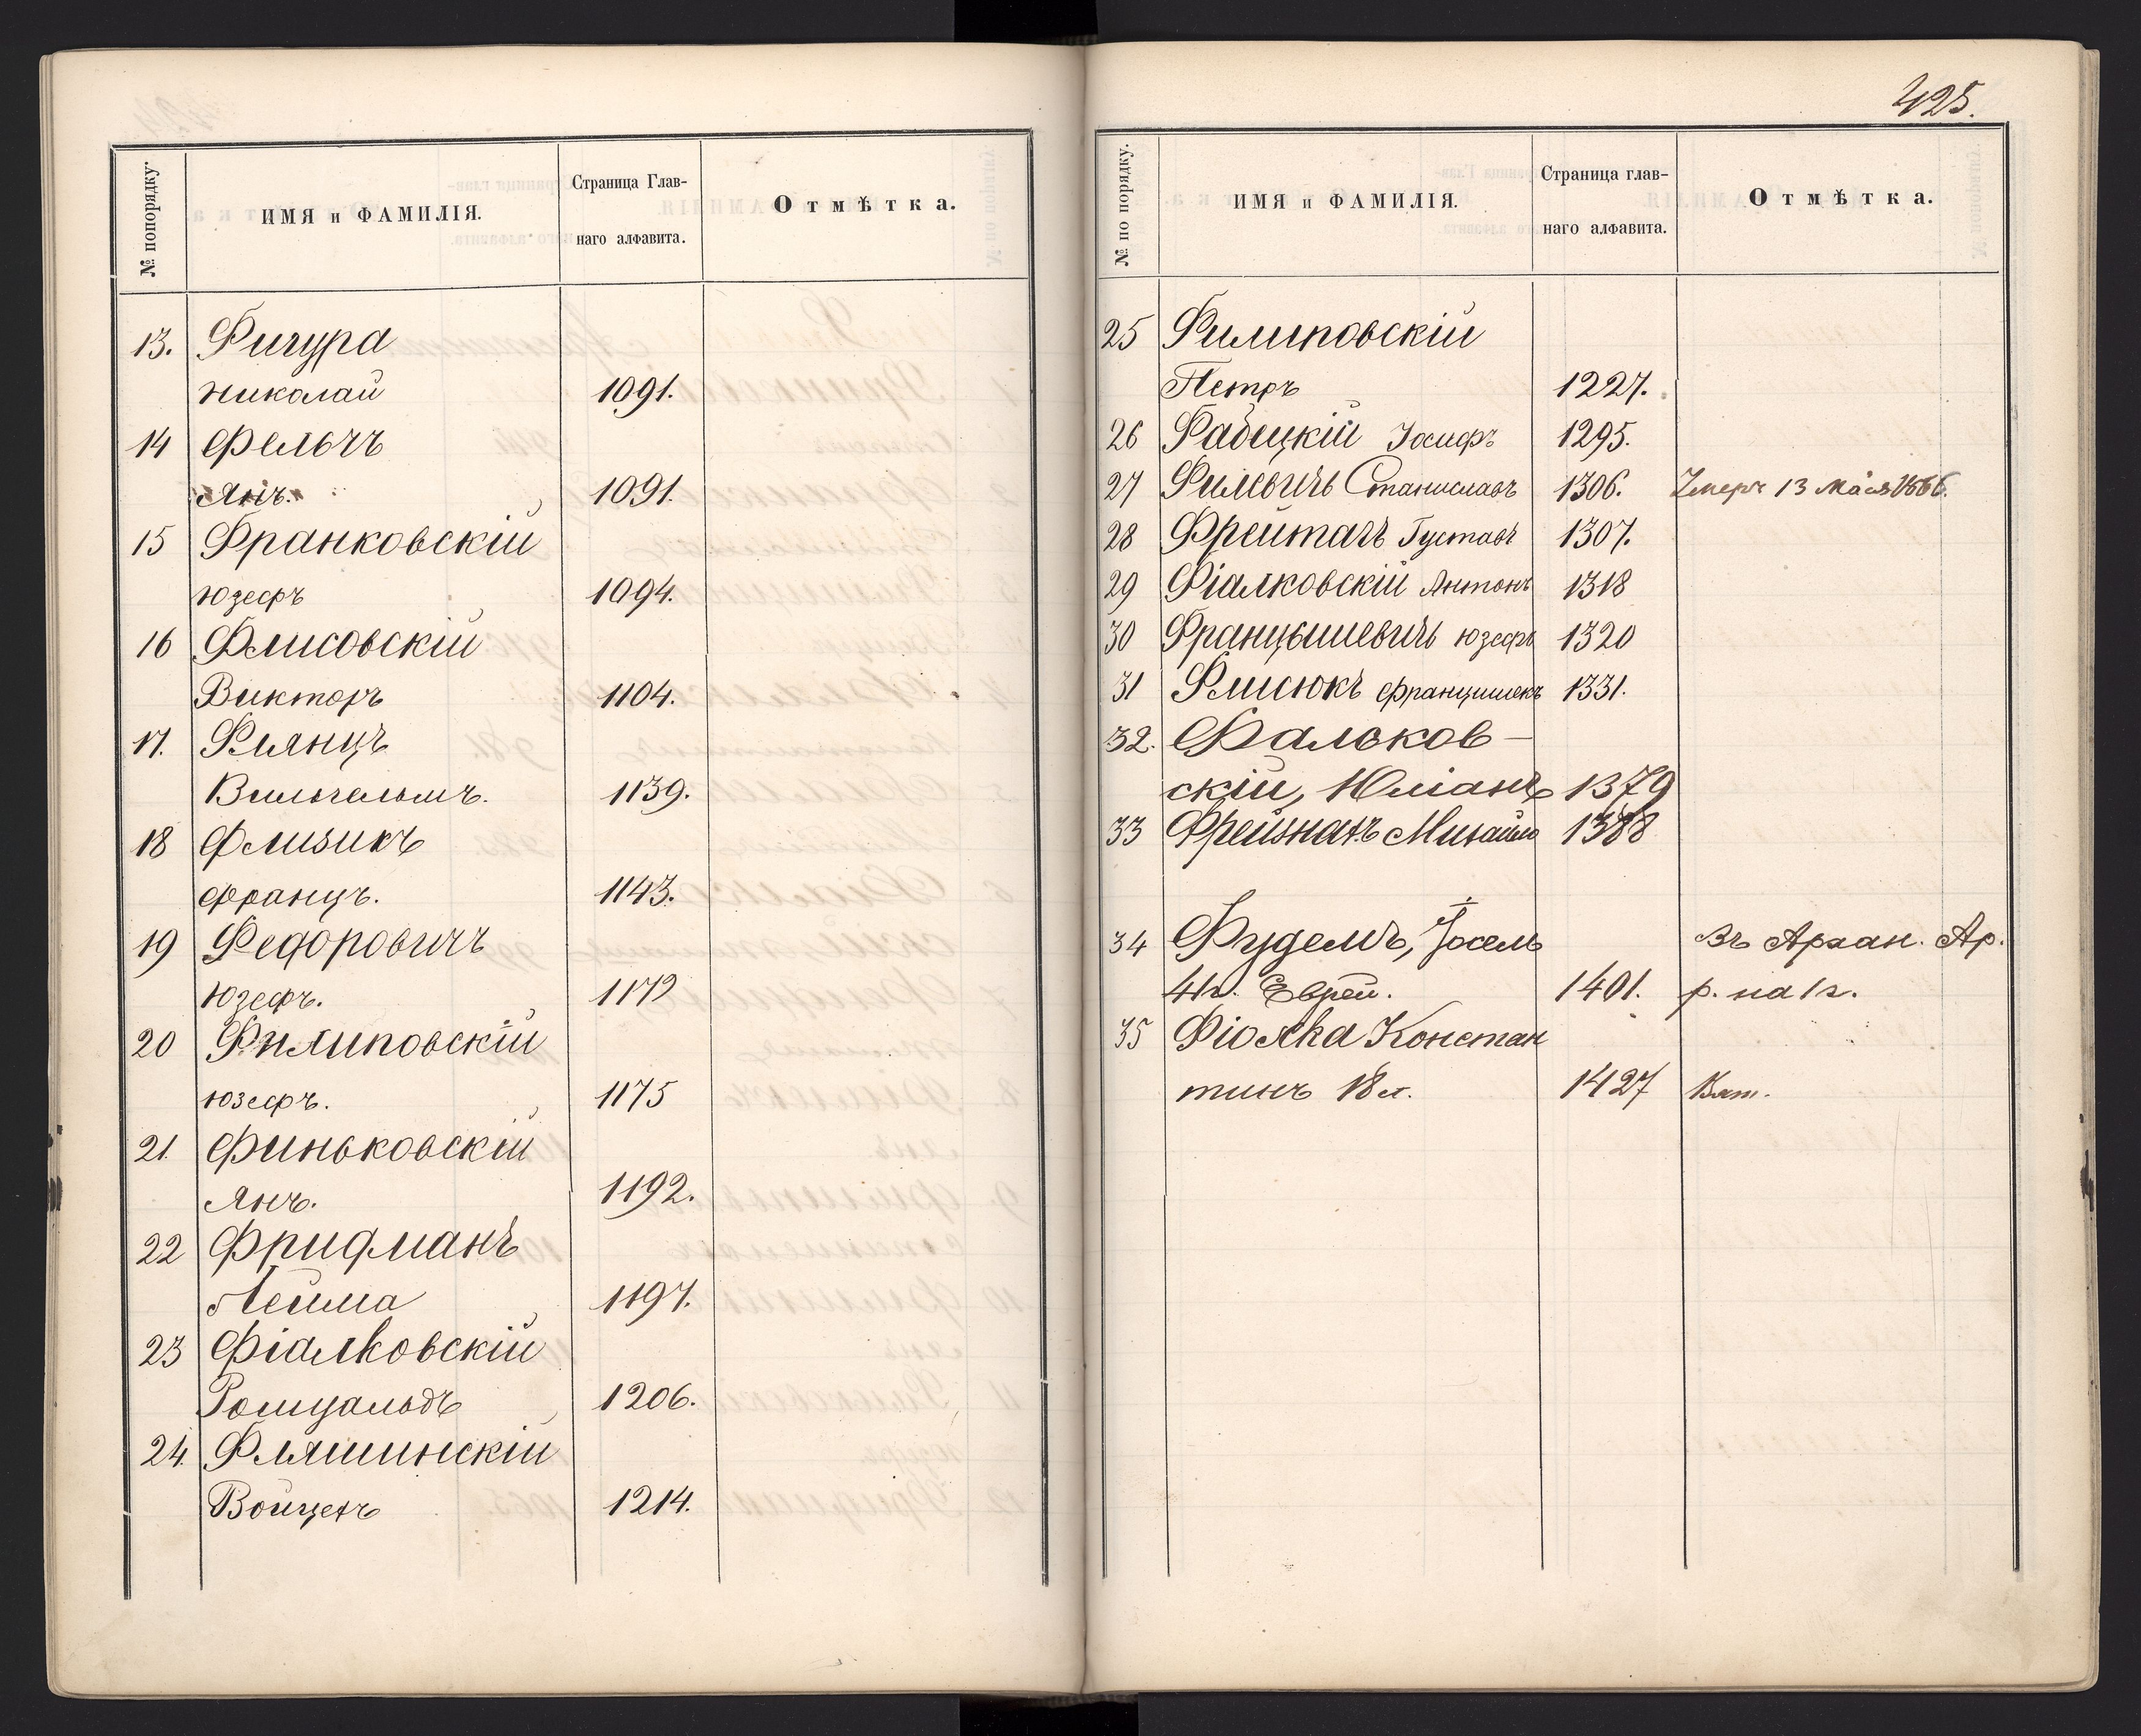 № попорядку.
ИМЯ и ФАМИЛІЯ.
Страница Глав-
наго алфавита.
Отмѣтка.
13. Фигура
Николай 1091.
14 Фельчъ
Янъ. 1091.
15 Франковскій
Юзефъ 1094.
16 Флисовскій
Викторъ 1104.
17. Флянцъ
Вильгельмъ. 1139.
18 Флизикъ
Францъ. 1143.
19 Федоровичъ
Юзефъ. 1172
20 Филиповскій
Юзефъ. 1175
21. Финьковскій
Янъ. 1192.
22 Фридманъ
Лейма 1197.
23 Фіалковскій
Ромуальдъ 1206.
24. Фляшинскій
Войцехъ 1214.
425.
№ по порядку.
ИМЯ и ФАМИЛІЯ.
Страница глав-
наго алфавита.
Отмѣтка.
25 Филиповскій
Петръ 1227.
26 Фабецкій Іосифъ 1295.
27 Филевичъ Станиславъ 1306. Умеръ 13 Мая 1866.
28 Фрейтагъ Густавъ 1307.
29 Фіалковскій Антонъ 1318
30 Францышевичъ Юзефъ 1320
31 Флисюкъ Францишекъ 1331.
32. Фальков-
скій, Юліанъ 1379
33 Фрейзнахъ Михайло 1388
34 Фудемъ, Іосель Въ Архан. Ар.
41 г. Еврей. 1401. р. на 1 г.
35 Фіолка Констан
тинъ 18 л. 1427 Вят.